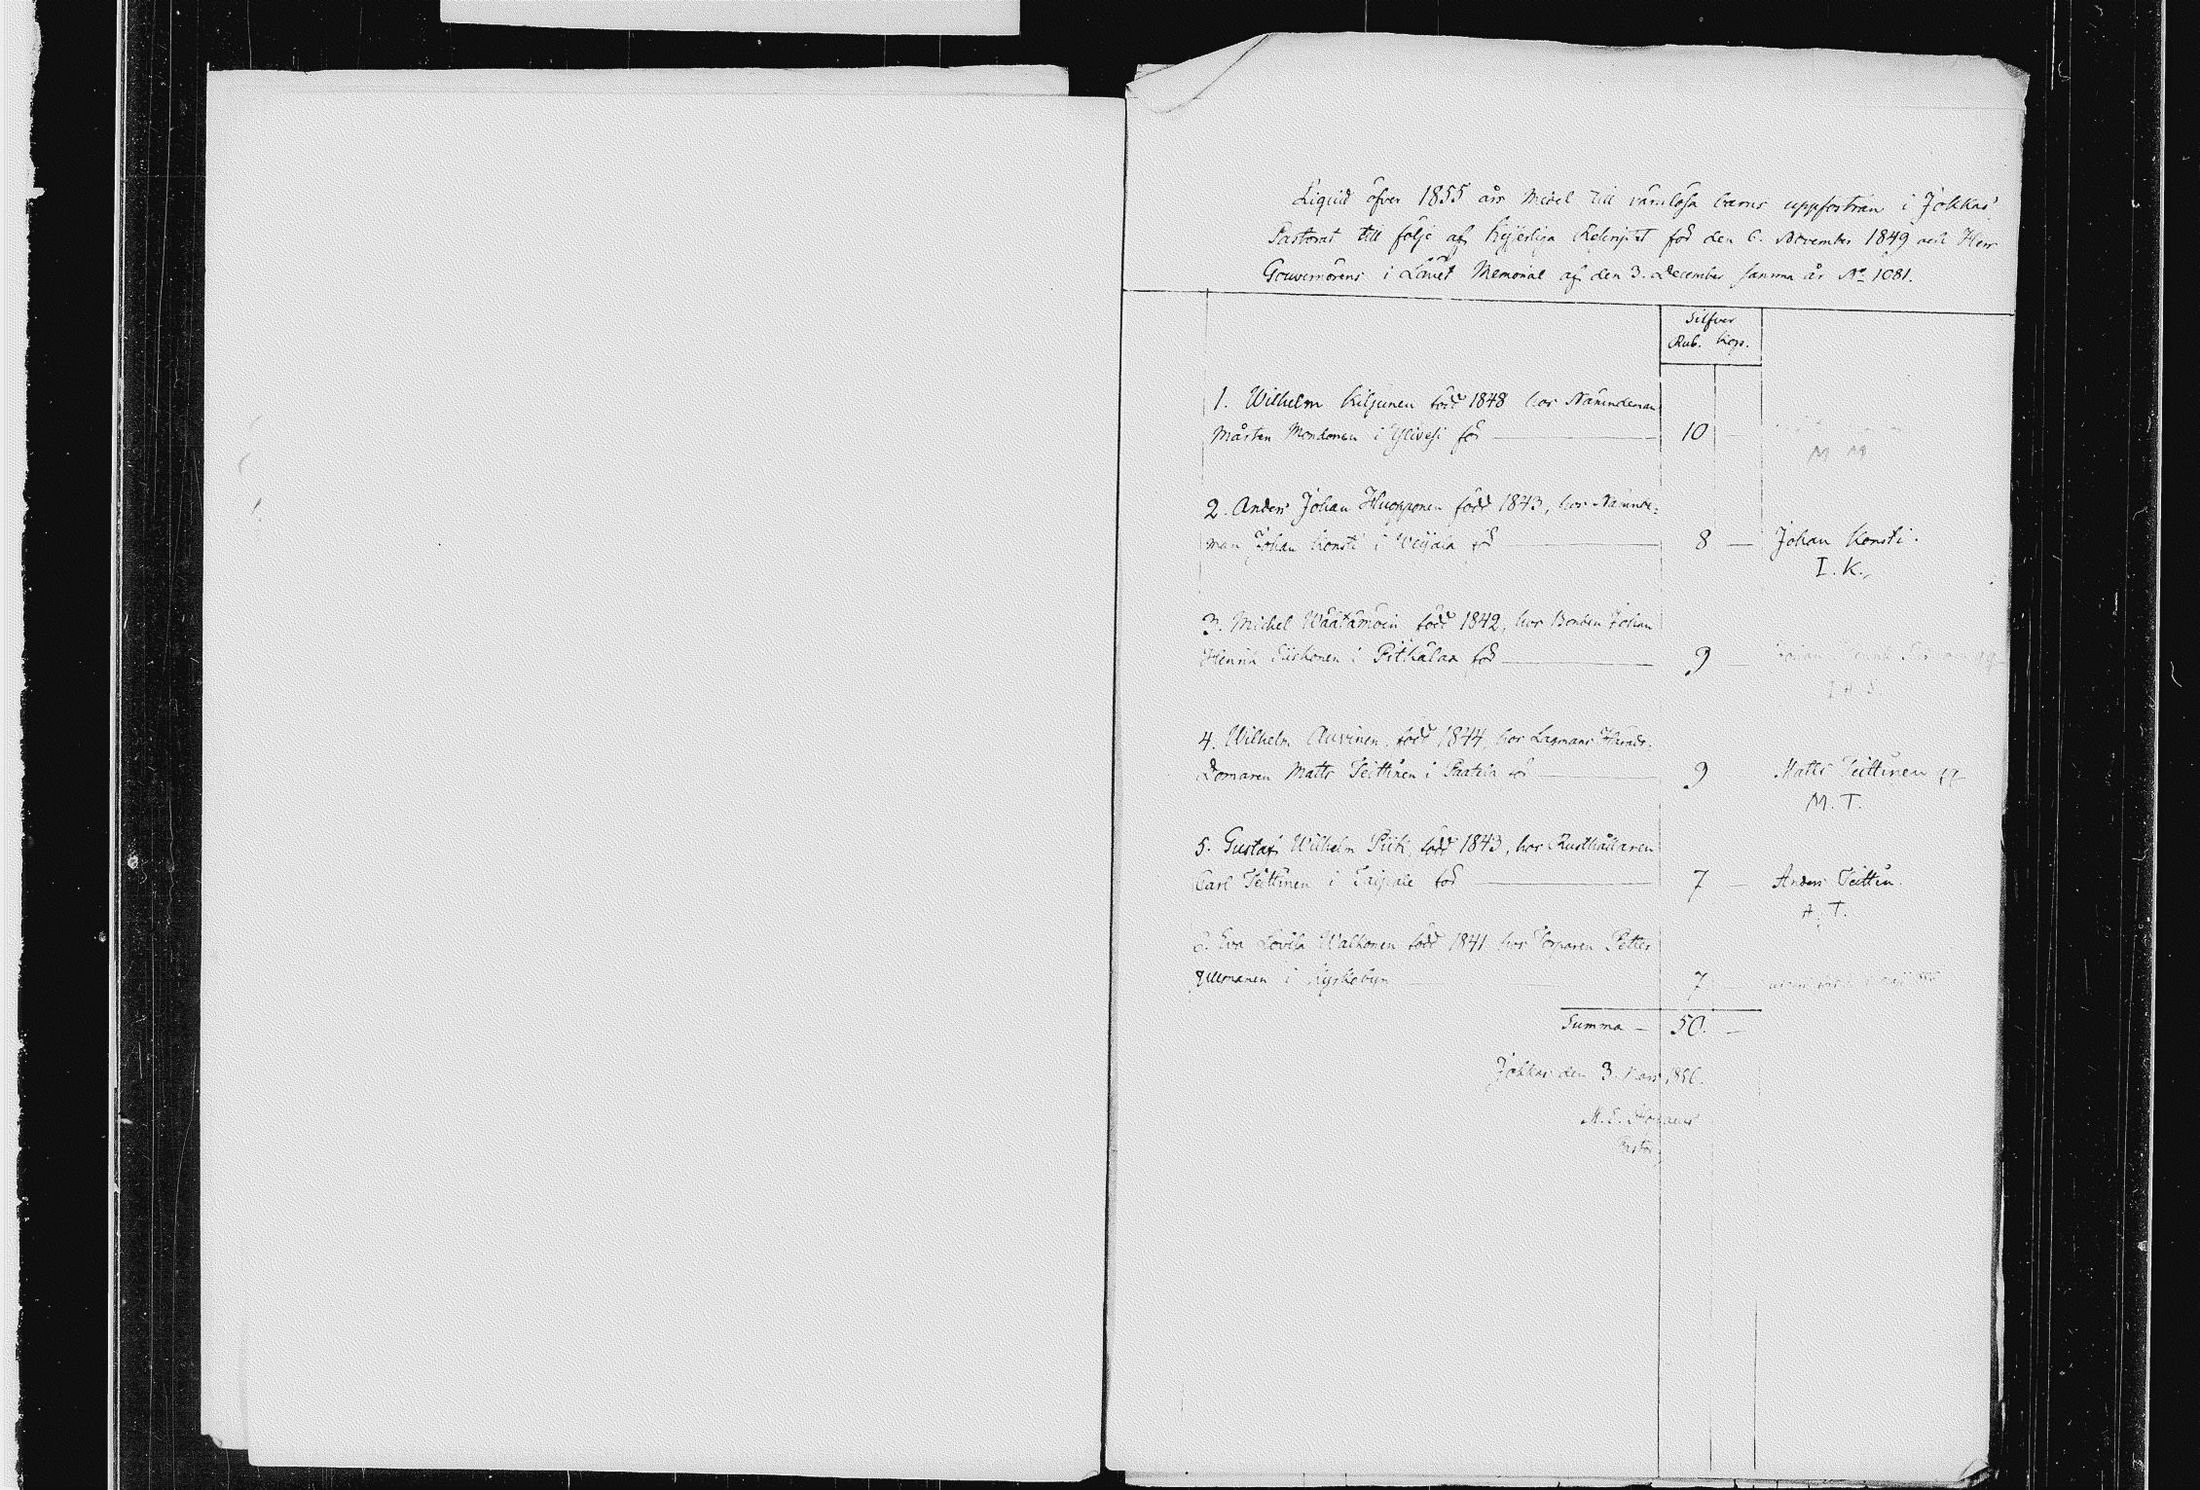 Liquid öfver 1855 års medel till värnlösa barns uppfostran i Jokkas
Pastorat till följe af Kejserliga Reskriptet för den 6. November 1849 och Herr
Gouvernörens i Länet Memorial af den 3. December samma år No 1081.
Silfver
Rub. Kop.
1. Wilhelm Kiljunen född 1848 hos Nämndeman
Mårten Mondonen i Ylivesi för 10 —
M M
2. Anders Johan Huopponen född 1843, hos Nämnde=
man Johan Konsti i Weijala för 8 — Johan Konsti.
I. K.
3. Michel Wäätämöin född 1842, hos Bonden Johan
Henrik Siiskonen i Pitkälax för 9 — Johan Henrik
I H S.
4. Wilhelm Auvinen, född 1844, hos Lagmans Härads
Domaren Matts Teittinen i Paatela för 9 Matts Teittinen
M. T.
5. Gustaf Wilhelm Piik, född 1843, hos Rusthållaren
Carl Teittinen i Taipale för 7 — Anders Teittin
A. T.
6. Eva Lovisa Walkonen född 1841 hos Torparen Petter
Ullmanen i Kyrkobyn 7. —
Summa — 50. —
Jokkas den 3. Mars 1856.
M. E.
Pastor